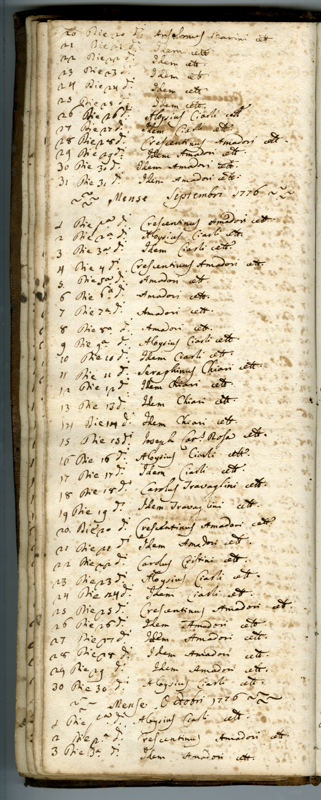 20 Die 20 d: Anselmus Pavini ett
21 Die 21 d: Idem ett
22 Die 22 d: Idem ett
23 Die 23 d: Idem ett
24 Die 24 d: Idem ett
25 Die 25 d: Idem ett
26 Die 26 d: Aloysius Ciarli ett
27 Die 27 d: Idem Ciarli ett
28 Die 28 d: Crescentinus Amadori ett.
29 Die 29 d: Idem Amadori ett.
30 Die 30 d: Idem Amadori ett.
31 Die 31 d: Idem Amadori ett.
Mense Septembri 1776
1 Die pa d: Crescentinus Amadori ett.
2 Die 2a d: Aloysius Ciarli ett.
3 Die 3a d: Idem Ciarli ett.
4 Die 4 d: Crescentinus Amadori ett.
5 Die 5a d: Amadori ett
6 Die 6a d: Amadori ett.
7 Die 7a d: Amadori ett.
8 Die 8a d: Amadori ett.
9 Die 9a d: Aloysius Ciarli ett.
10 Die 10 d: Idem Ciarli ett.
11 Die 11 d: Seraphinus Chiari ett.
12 Die 12 d: Idem Chiari ett
13 Die 13 d: Idem Chiari ett.
14 Die 14 d: Idem Chiari ett.
15 Die 15 d: Joseph Rosa ett.
16 Die 16 d: Aloysius Ciarli ett.
17 Die 17 d: Idem Ciarli ett.
18 Die 18 d: Carolus Travaglini ett.
19 Die 19 d: Idem Travaglini ett.
20 Die 20 d: Crescentinus Amadori ett.
21 Die 21 d: Idem Amadori ett.
22 Die 22 d: Carolus ett.
23 Die 23 d: Aloysius Ciarli ett.
24 Die 24 d: Idem Ciarli ett.
25 Die 25 d: Crescentinus Amadori ett.
26 Die 26 d: Idem Amadori ett.
27 Die 27 d: Idem Amadori ett.
28 Die 28 d: Idem Amadori ett.
29 Die 29 d: Idem Amadori ett.
30 Die 30 d: Aloysius Ciarli ett.
Mense Octobri 1776
1 Die pa d: Aloysius Ciarli ett
2 Die 2a d: Crescentinus Amadori ett
3 Die 3a d: Idem Amadori ett.